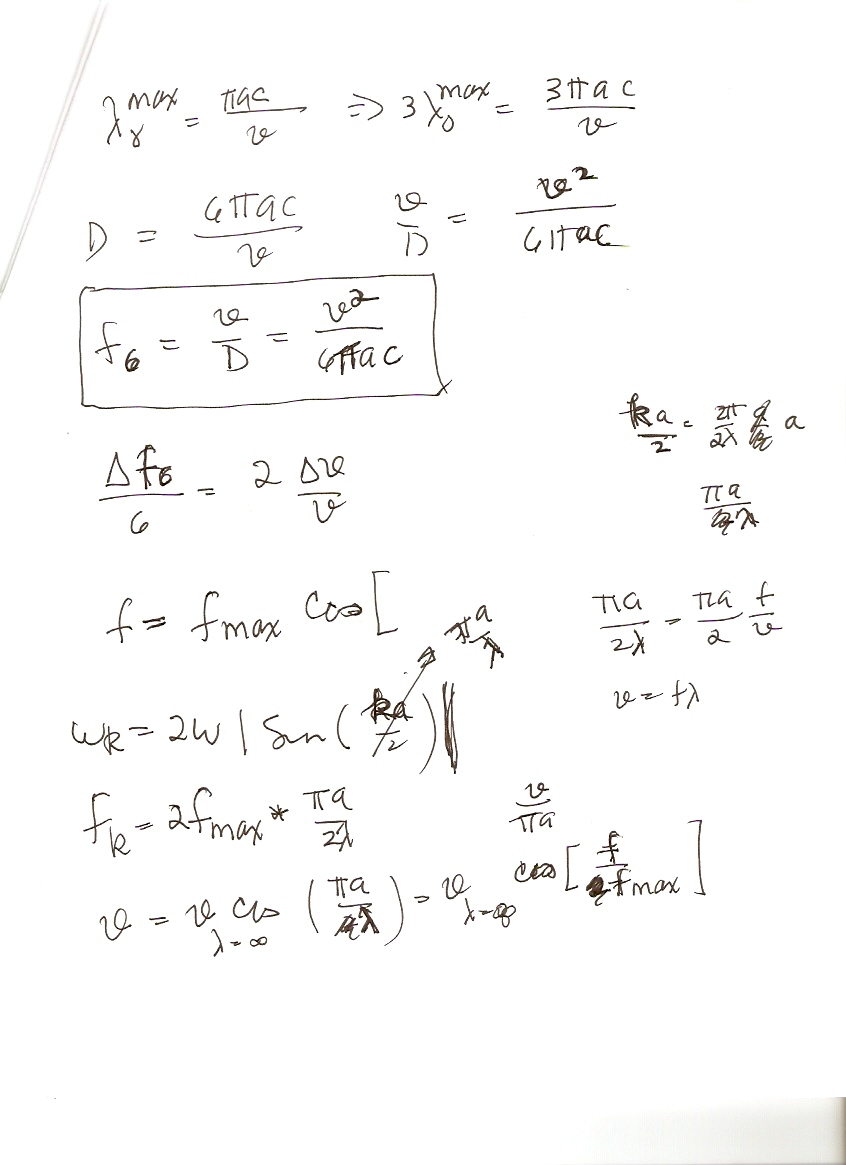 λγ^max = πac/v ⇒ 3λγ^max = 3πac/v
D = 6πac/v   v/D = v²/6πac
f₆ = v/D = v²/6πac
ka/2 = 2π/2λ a
Δf₆/6 = 2 Δv/v
πa/λ
f = fmax cos[
πa/λ
πa/2λ = πa/2 f/v
v = fλ
ωk = 2ω | Sin(ka/2)|
fk = 2fmax * πa/2λ
v/πa
v = v λ=∞ cos (πa/λ) = v λ=∞ cos [f/fmax]